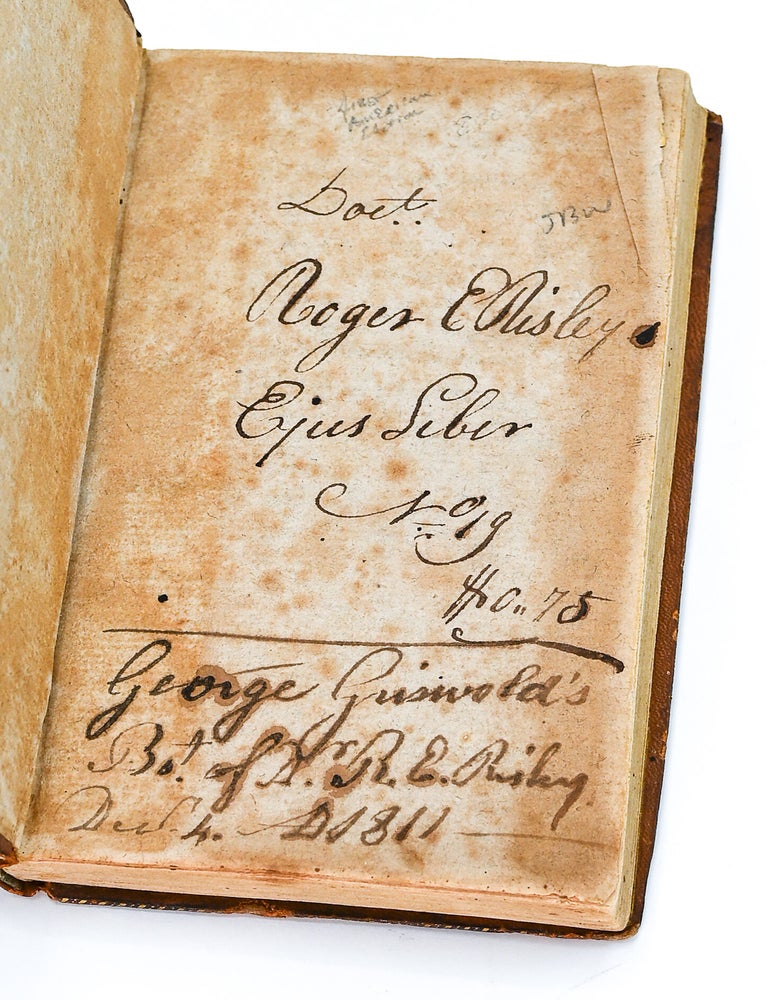 First
American
Edition
JBW
Doct.
Roger E Risley
Ejus Liber
No 19
$0.. 75
George Griswold's
Bot. of Dr. R. E. Risley
Decr. 4. AD 1811